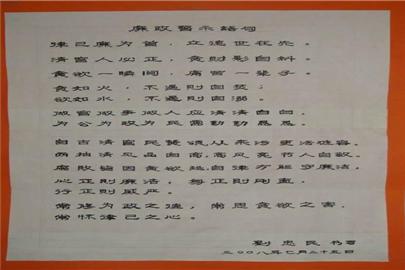 廉政警示结句
律己廉为首，立德世在先。
清官人心正，贪财影自斜。
贪欲一瞬间，痛苦一辈子。
贪如火，不遏则自焚；
欲如水，不遏则自溺。
做官做事做人应清清白白
为公为政为民需勤勤恳恳
自古清官民赞颂从来治吏
两袖清风品自高高风亮节人自敬。
腐败皆因贪欲始自律方能守廉洁，
心正则廉洁，身正则刚直，
行正则威严。
常修为政之德，常思贪欲之害，
常怀律己之心。
刘忠民书
二〇〇八年七月二十五日